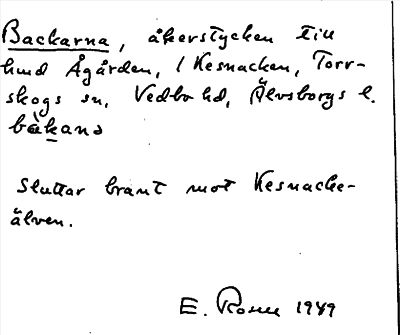 Backarna, åkerstycken till
hmd Ågården, i Kesnacken, Torr-
skogs sn, Vedbo hd, Älvsborgs l.
bàkana
Sluttar brant mot Kesnacke-
älven.
E. Rosell 1949